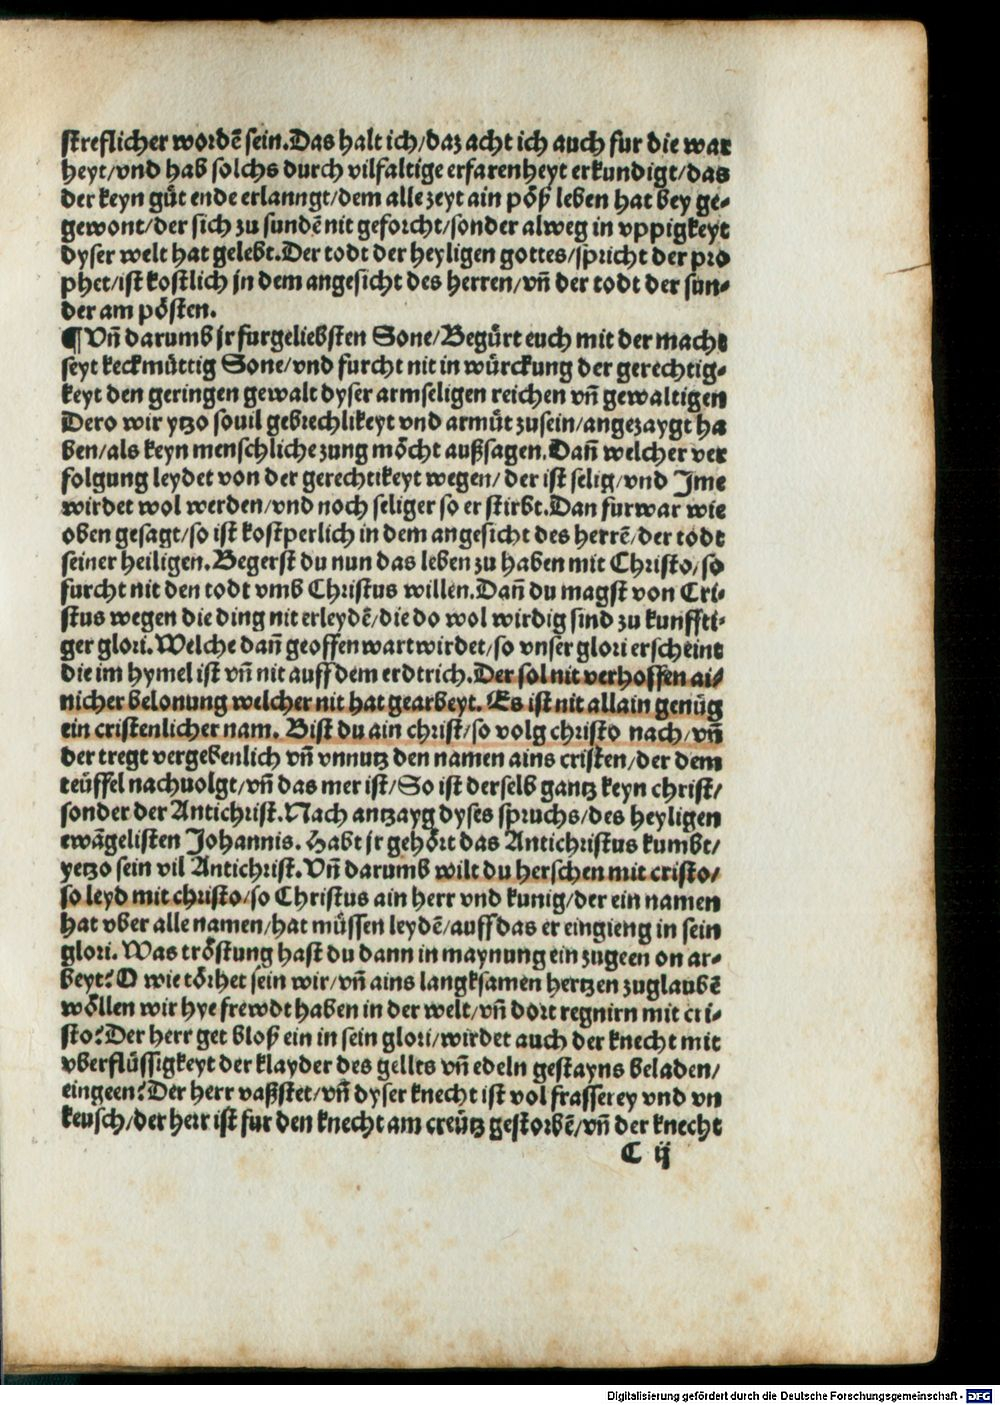 streflicher wordē sein. Das halt ich/daz acht ich auch fur die war
heyt/vnd hab solchs durch vilfaltige erfarenheyt erkundigt/das
der keyn gůt ende erlanngt/dem alle zeyt ain pöß leben hat bey ge-
gewont/der sich zu sundē nit geforcht/sonder alweg in vppigkeyt
dyser welt hat gelebt. Der todt der heyligen gottes/spricht der pro
phet/ist kostlich jn dem angesicht des herren/vn̄ der todt der sün-
der am pösten.
¶ Vn̄ darumb jr furgeliebsten Sone/Begürt euch mit der macht
seyt keckmüttig Sone/vnd furcht nit in würckung der gerechtig-
keyt den geringen gewalt dyser armseligen reichen vn̄ gewaltigen
Dero wir ytzo souil gebrechlikeyt vnd armůt zusein/angezaygt ha
ben/als keyn menschliche zung möcht außsagen. Dan̄ welcher ver
folgung leydet von der gerechtikeyt wegen/ der ist selig/vnd Jme
wirdet wol werden/vnd noch seliger so er stirbt. Dan furwar wie
oben gesagt/so ist kostperlich in dem angesicht des herrē/der todt
seiner heiligen. Begerst du nun das leben zu haben mit Christo/so
furcht nit den todt vmb Christus willen. Dan̄ du magst von Cri-
stus wegen die ding nit erleydē/die do wol wirdig sind zu kunffti-
ger glori. Welche dan̄ geoffenwart wirdet/so vnser glori erscheint
die im hymel ist vn̄ nit auff dem erdtrich. Der sol nit verhoffen ai-
nicher belonung welcher nit hat gearbeyt. Es ist nit allain genůg
ein cristenlicher nam. Bist du ain christ/so volg christo nach/vn̄
der tregt vergebenlich vn̄ vnnutz den namen ains cristen/der dem
teüffel nachuolgt/vn̄ das mer ist/So ist derselb gantz keyn christ/
sonder der Antichrist. Nach antzayg dyses spruchs/des heyligen
ewāgelisten Johannis. Habt jr gehört das Antichristus kumbt/
yetzo sein vil Antichrist. Vn̄ darumb wilt du herschen mit cristo/
so leyd mit christo/so Christus ain herr vnd kunig/der ein namen
hat vber alle namen/hat müssen leydē/auff das er eingieng in sein
glori. Was tröstung hast du dann in maynung ein zugeen on ar-
beyt? O wie törhet sein wir/vn̄ ains langksamen hertzen zuglaubē
wöllen wir hye frewdt haben in der welt/vn̄ dort regnirn mit cri-
sto? Der herr get bloß ein in sein glori/wirdet auch der knecht mit
vberflüssigkeyt der klayder des gellts vn̄ edeln gestayns beladen/
eingeen? Der herr vaßstet/vn̄ dyser knecht ist vol frasserey vnd vn
keusch/der herr ist fur den knecht am creütz gestorbē/vn̄ der knecht
C ij
Digitalisierung gefördert durch die Deutsche Forschungsgemeinschaft - DFG